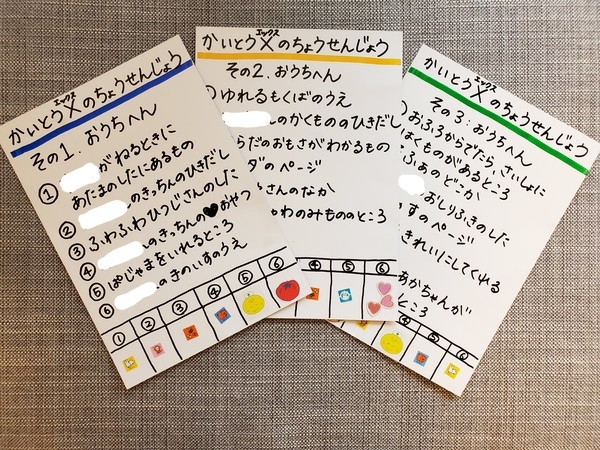 かいとうXのちょうせんじょう
エックス
その1. おうちへん
① がねるときに
あたまのしたにあるもの
② のきっちんのひきだし
③ ふわふわひつじさんのした
④ のきっちんの♥おやつ
⑤ ぱじゃまをいれるところ
⑥ のきのいすのうえ
① ② ③ ④ ⑤ ⑥
かいとうXのちょうせんじょう
エックス
その2. おうちへん
ゆれるもくばのうえ
のかくもののひきだし
らだのおもさがわかるもの
のページ
さんのなか
のみもののところ
④ ⑤ ⑥
かいとうXのちょうせんじょう
エックス
その3: おうちへん
おふろからでたら、さいしょに
はくものがあるところ
ふぁのどこか
おしりふきのした
すのページ
きれいにしてくれる
あかちゃんが
ところ
⑤ ⑥